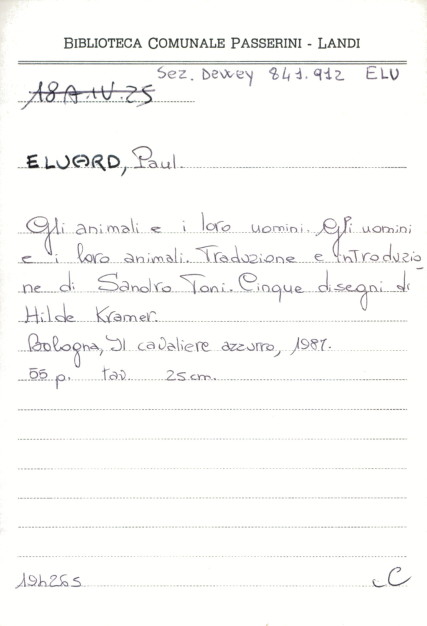 BIBLIOTECA COMUNALE PASSERINI - LANDI
Sez. Dewey 841.912 ELU
18A.IV.25
ELUARD, Paul.
Gli animali e i loro uomini. Gli uomini
e i loro animali. Traduzione e introduzio
ne di Sandro Toni. Cinque disegni di
Hilde Kramer.
Bologna, Il cavaliere azzurro, 1981.
55 p. tav. 25 cm.
C